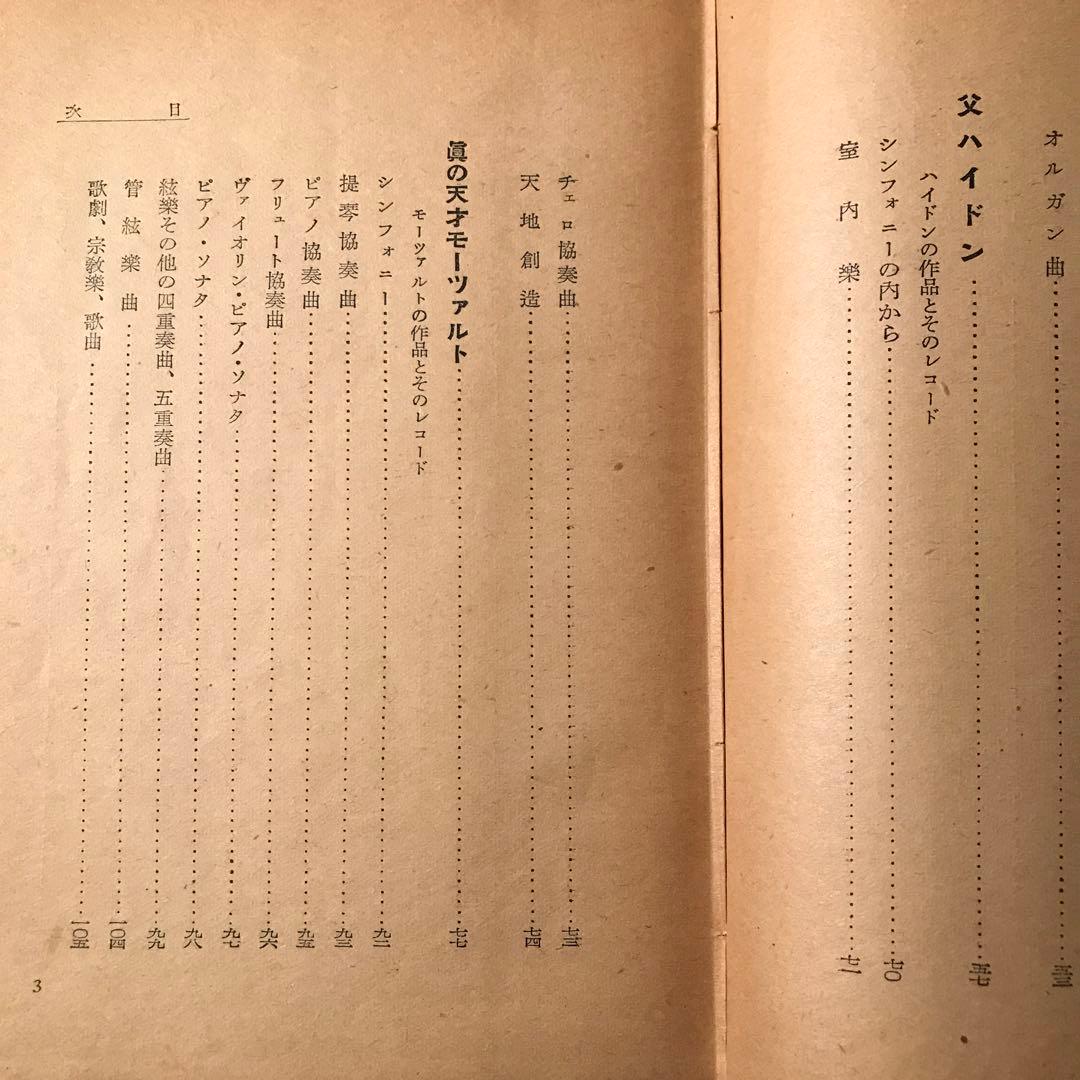 オルガン曲……五三
父ハイドン……五七
ハイドンの作品とそのレコード
シンフォニーの內から……七〇
室內樂……七一
チェロ協奏曲……七三
天地創造……七四
眞の天才モーツァルト……七七
モーツァルトの作品とそのレコード
シンフォニー……九二
提琴協奏曲……九三
ピアノ協奏曲……九五
フリュート協奏曲……九六
ヴァイオリン・ピアノ・ソナタ……九七
ピアノ・ソナタ……九八
絃樂その他の四重奏曲、五重奏曲……九九
管絃樂曲……一〇四
歌劇、宗敎樂、歌曲……一〇五
目次
3